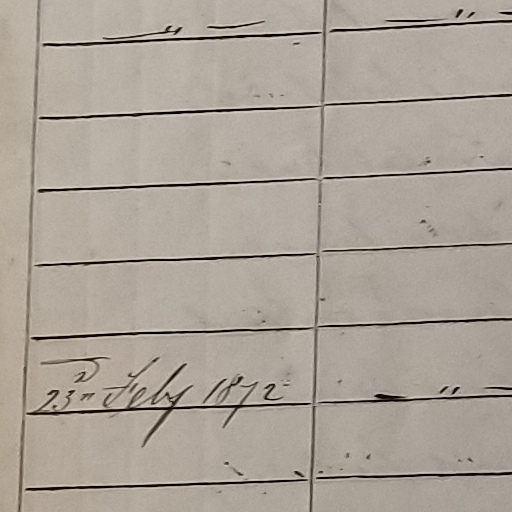 — " —    — " —
23rd Feby 1872    — " —